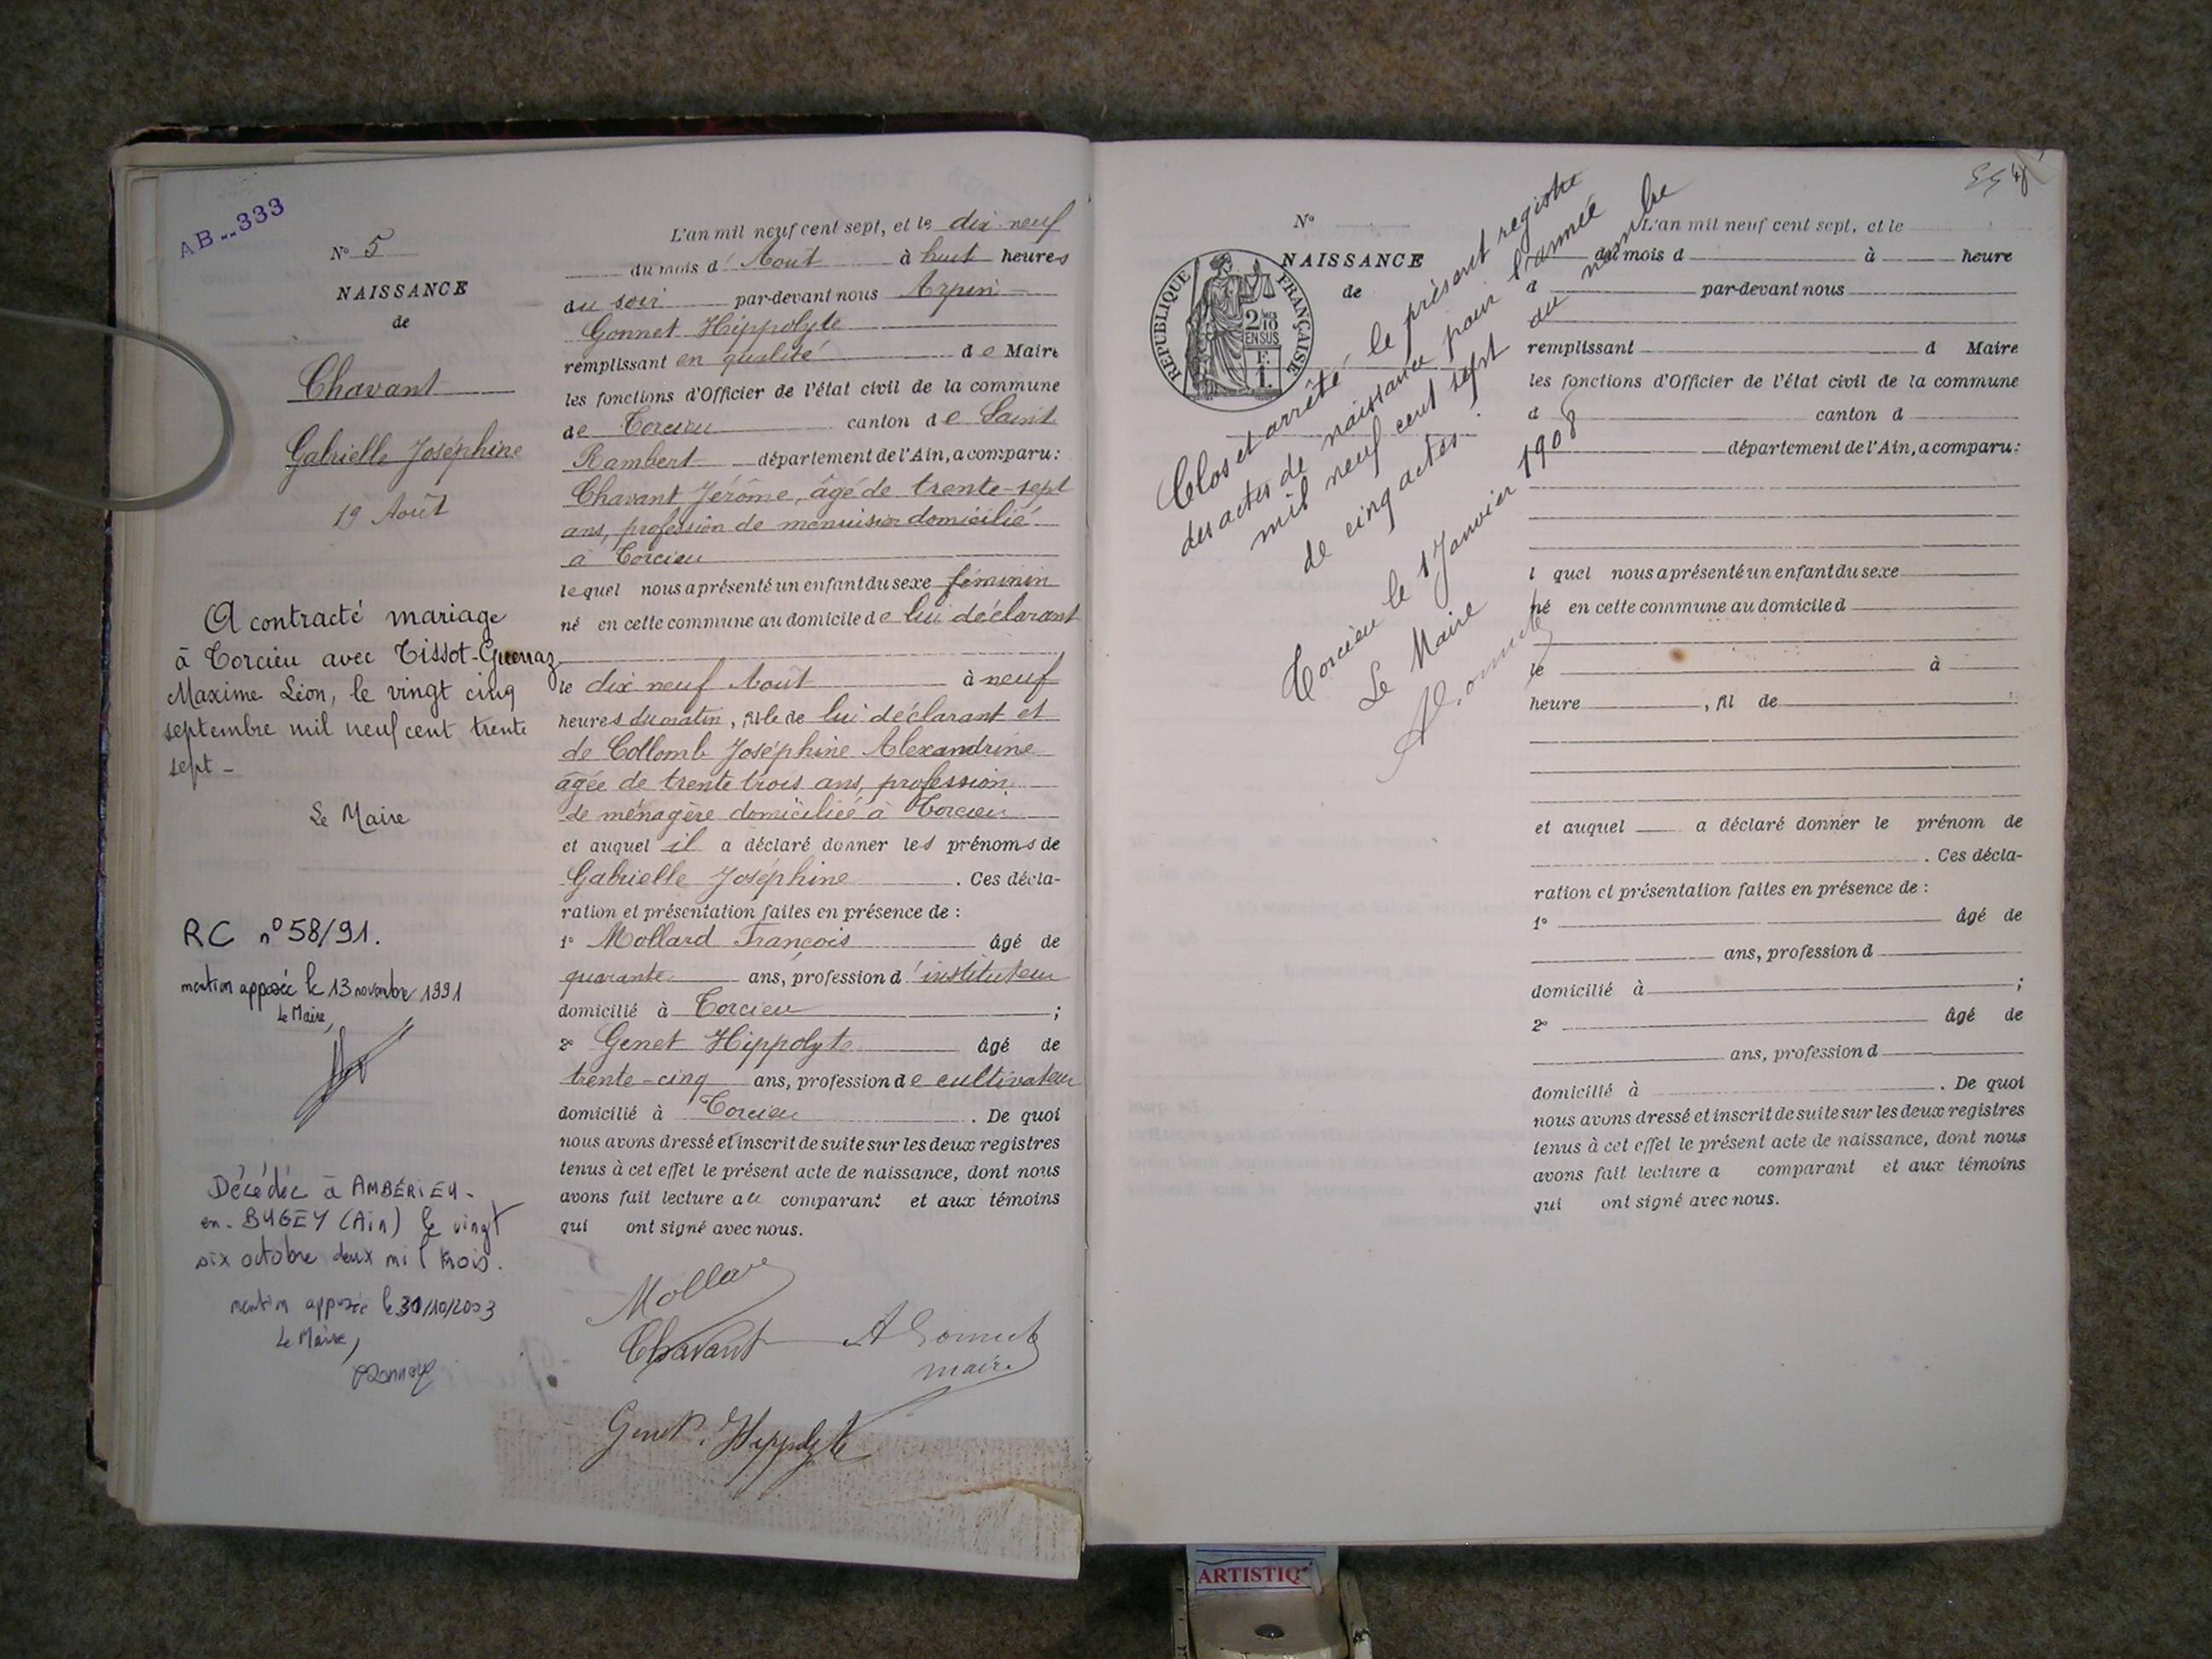 AB--333
N° 5
NAISSANCE
de
Chavant
Gabrielle Joséphine
19 Août
A contracté mariage
à Torcieu avec Tissot-Guerraz
Maxime Léon, le vingt cinq
septembre mil neuf cent trente
sept -
Le Maire
RC n° 58/91.
mention apposée le 13 novembre 1991
Le Maire,
Décédée à AMBÉRIEU-
en-BUGEY (Ain) le vingt
six octobre deux mil trois.
mention apposée le 30/10/2003
Le Maire,
L'an mil neuf cent sept, et le dix-neuf
du mois d'Aout à huit heures
du soir par-devant nous Arpin
Gonnet Hippolyte
remplissant en qualité de Maire
les fonctions d'Officier de l'état civil de la commune
de Torcieu canton de Saint
Rambert département de l'Ain, a comparu:
Chavant Jérôme, âgé de trente-sept
ans, profession de menuisier domicilié
à Torcieu
lequel nous a présenté un enfant du sexe féminin
né en cette commune au domicile de lui déclarant
le dix neuf Août à neuf
heures du matin, fille de lui déclarant et
de Collomb Joséphine Alexandrine
âgée de trente trois ans, profession
de ménagère domiciliée à Torcieu
et auquel il a déclaré donner les prénoms de
Gabrielle Joséphine. Ces décla-
ration et présentation faites en présence de :
1° Mollard François âgé de
quarante ans, profession d'instituteur
domicilié à Torcieu ;
2° Genet Hippolyte âgé de
trente-cinq ans, profession de cultivateur
domicilié à Torcieu. De quoi
nous avons dressé et inscrit de suite sur les deux registres
tenus à cet effet le présent acte de naissance, dont nous
avons fait lecture au comparant et aux témoins
qui ont signé avec nous.
Mollard
Chavant A Gonnet
maire
Genet Hippolyte
N°
NAISSANCE
de
RÉPUBLIQUE FRANÇAISE
2/10
EN SUS
Clos et arrêté le présent registre
des actes de naissance pour l'année
mil neuf cent sept au nombre
de cinq actes.
Torcieu le 1 Janvier 1908
Le Maire
L'an mil neuf cent sept, et le
du mois d à heure
d par-devant nous
remplissant d Maire
les fonctions d'Officier de l'état civil de la commune
d canton d
département de l'Ain, a comparu:
l quel nous a présenté un enfant du sexe
né en cette commune au domicile d
le à
heure , fil de
et auquel a déclaré donner le prénom de
. Ces décla-
ration et présentation faites en présence de :
1° âgé de
ans, profession d
domicilié à ;
2° âgé de
ans, profession d
domicilié à . De quoi
nous avons dressé et inscrit de suite sur les deux registres
tenus à cet effet le présent acte de naissance, dont nous
avons fait lecture a comparant et aux témoins
qui ont signé avec nous.
ARTISTIQ